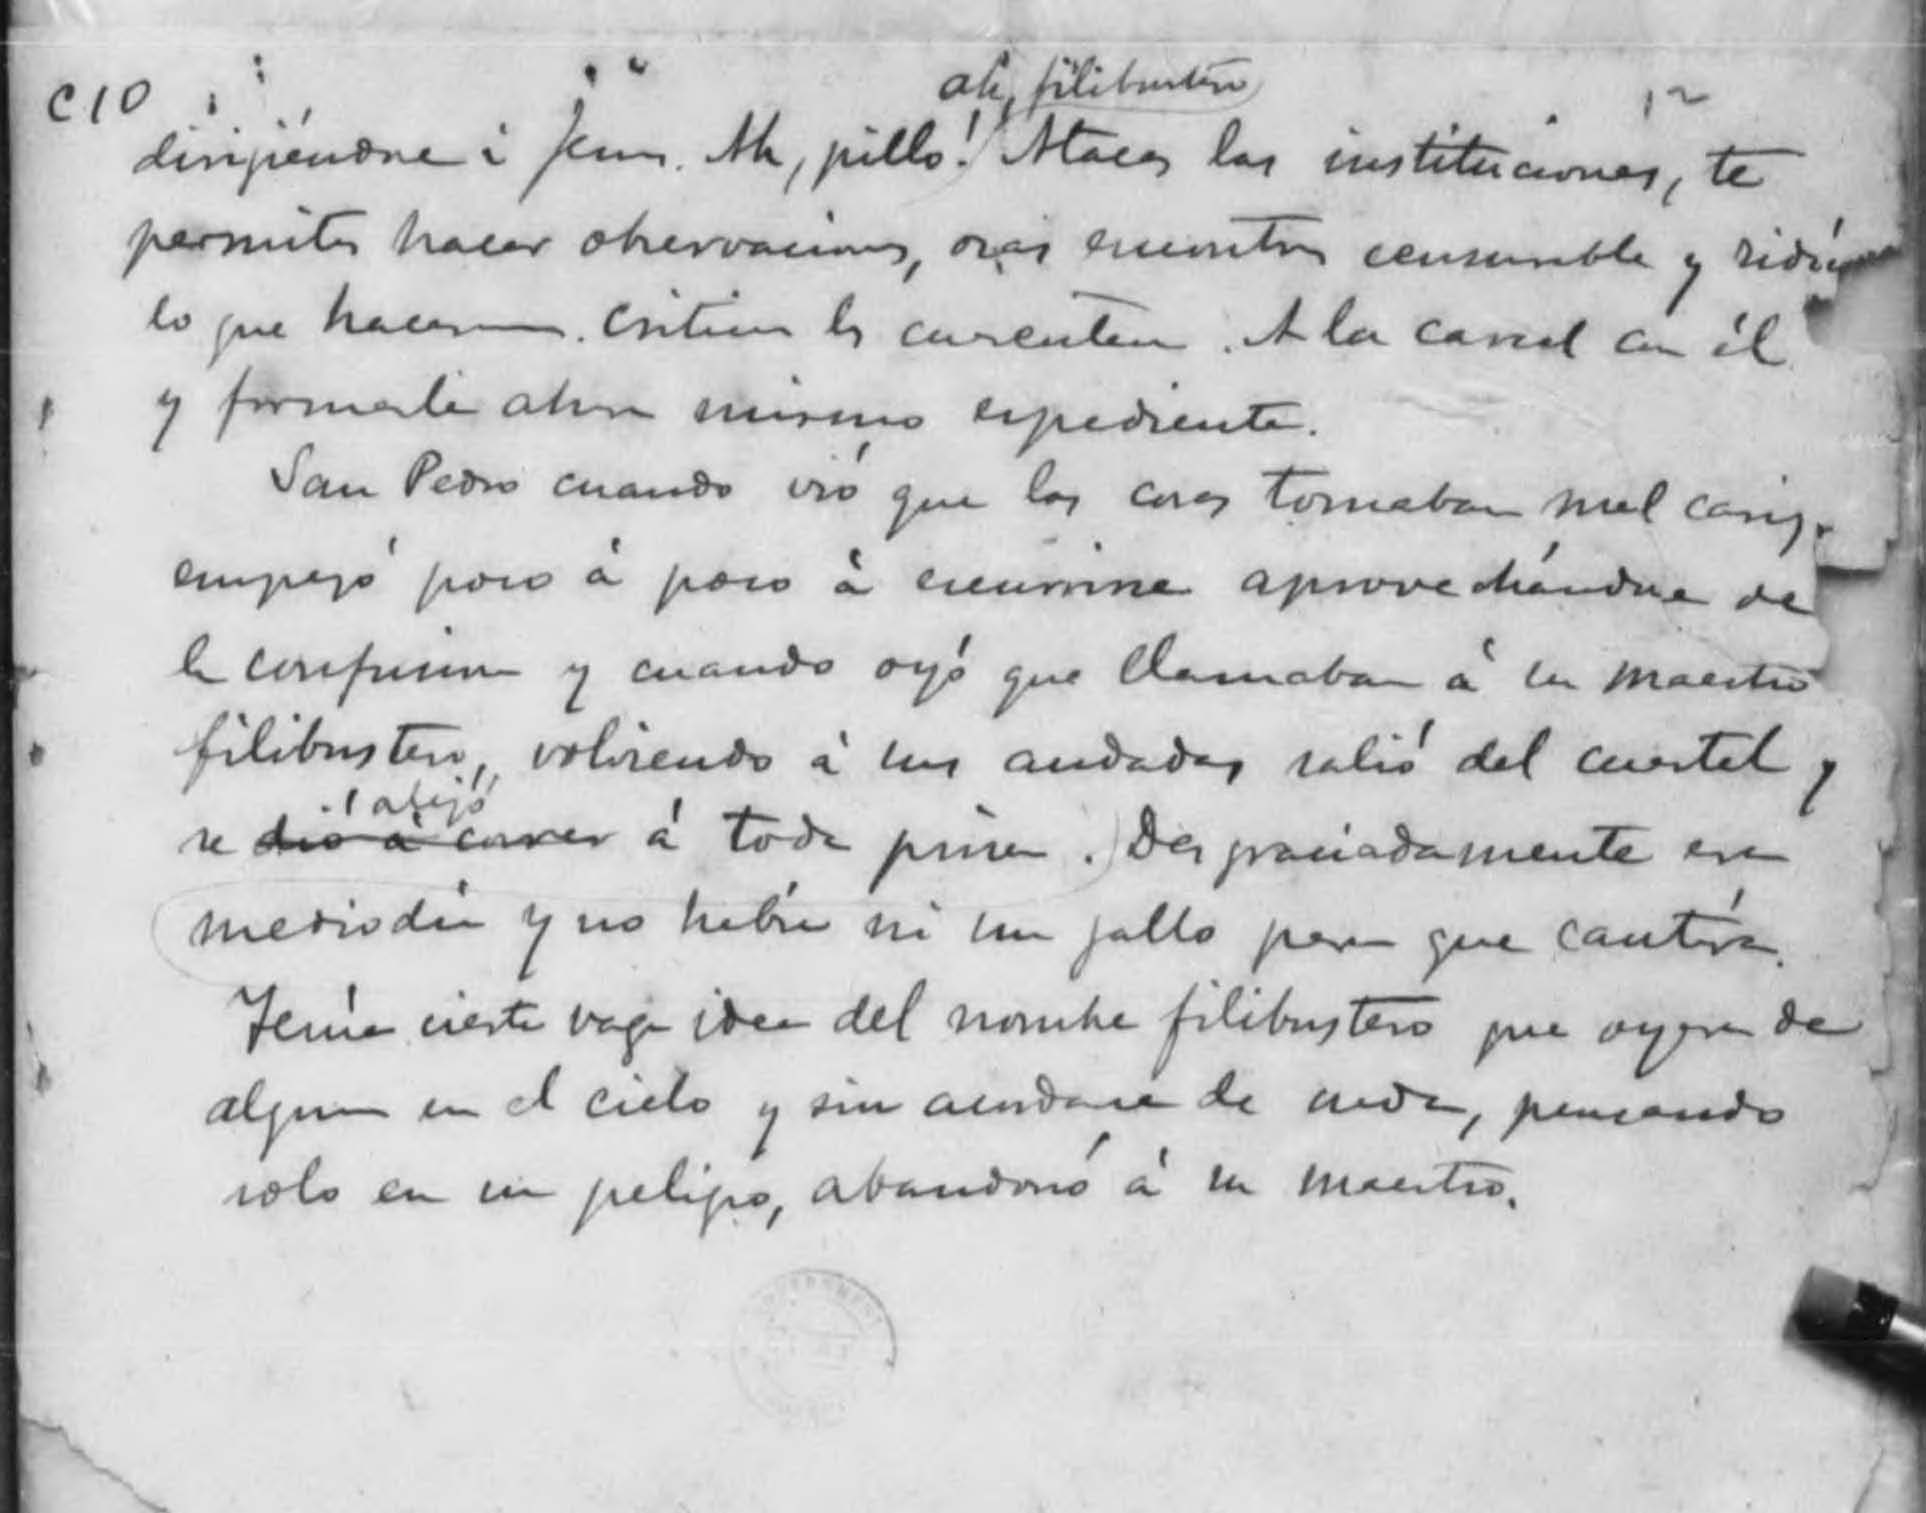 C10
ah, filibustero
dirijiéndose á Jesus. Ah, pillo! Atacas las instituciones, te
permites hacer observaciones, osas encontrar censurable y
lo que hacemos. Criticas A la carcel con él
y formarle ahora mismo expediente.
San Pedro cuando vió que las cosas tomaban mal cariz
empezó poco á poco á escurrirse aprovechándose de
la confusion y cuando oyó que llamaban á su maestro
filibustero, volviendo á sus andadas salió del cuartel y
alejó
se dió á correr á toda prisa. Desgraciadamente era
mediodia y no habia ni un gallo para que cantára.
Tenia cierta vaga idea del nombre filibustero que oyera de
alguno en el cielo y sin acordarse de nada, pensando
solo en su peligro, abandonó á su maestro.